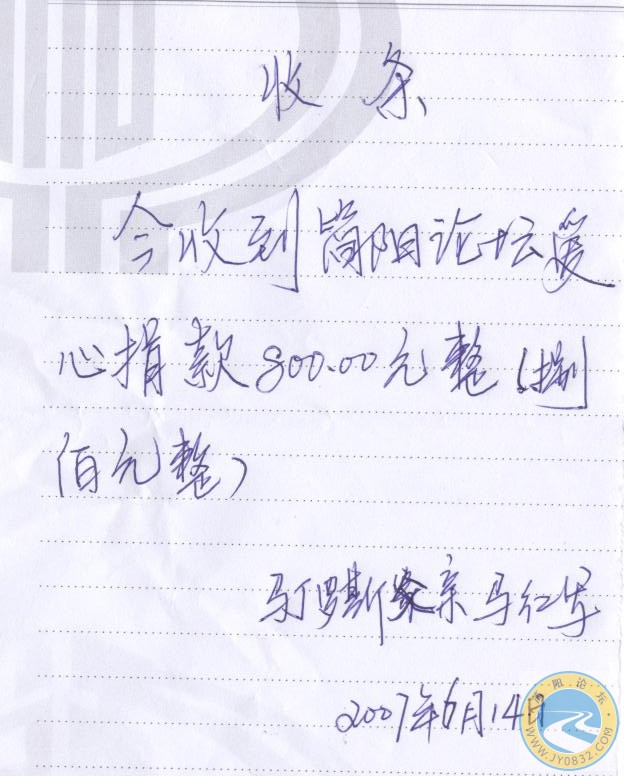 收条
今收到简阳论坛爱
心捐款800.00元整（捌
佰元整）
马丁罗斯家亲马红军
2007年6月14日
阳论坛
WWW.JY0832.COM